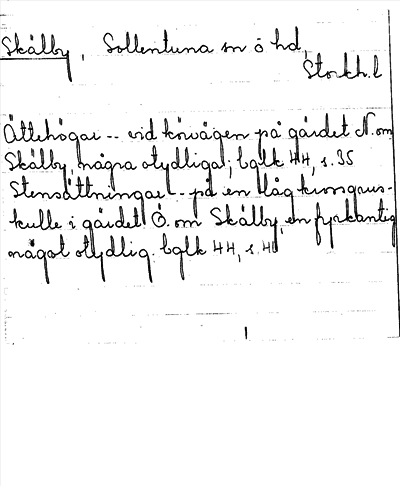 Skälby, Sollentuna sn o hd,
Stockh. l
Ättehögar -- vid körvägen på gärdet N. om
Skälby, några otydliga; bglk 44, s. 35
Stensättningar -- på en låg krossgrus-
kulle i gärdet Ö. om Skälby, en fyrkantig
något otydlig. bglk 44, s. 40